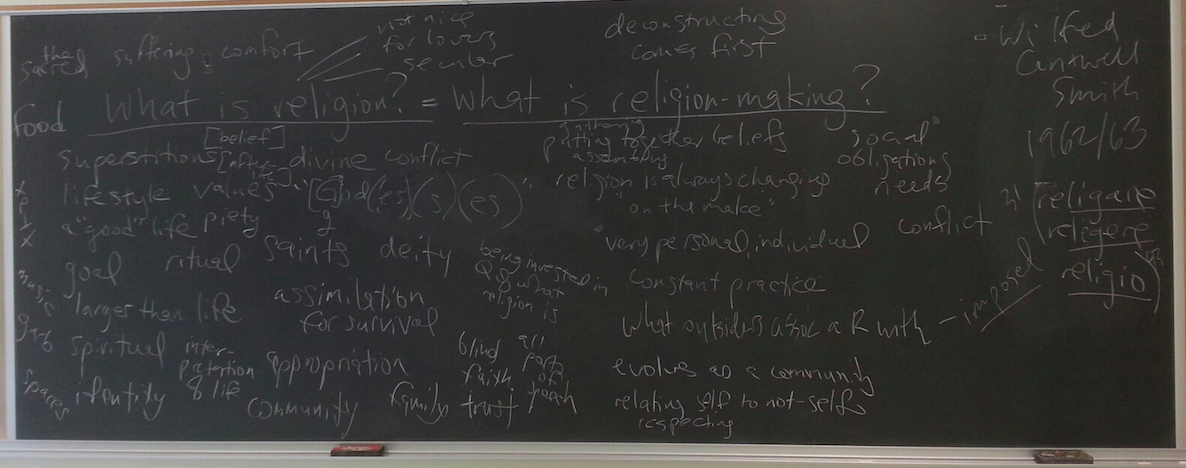 the
sacred
suffering : comfort
not nice
for lovers
secular
deconstructing
comes first
Wilfred
Cantwell
Smith
1962/63
food
What is religion? = What is religion-making?
[belief]
superstitions
divine conflict
lifestyle values
"[G]od(ess)(s)(es)"
g
a "good" life piety
goal ritual saints deity
larger than life
assimilation
for survival
spiritual
appropriation
identity
& life
community family trust
blind
faith
all
part
of
being invested in
Q of what
religion is
music
garb
spaces
gathering
putting together beliefs
assembling
religion is always changing
"on the make"
very personal, individual
constant practice
what outsiders assoc a R with – imposed
evolves as a community
relating self to not-self
respecting
social
obligations
needs
conflict
religare
religere
religio